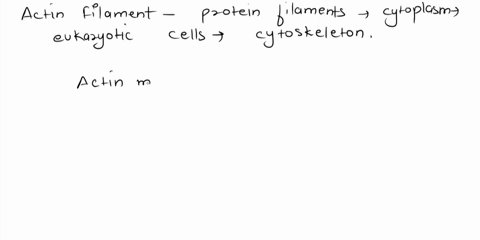 Actin Filament – protein filaments → cytoplasm →
eukaryotic cells → cytoskeleton.
Actin m